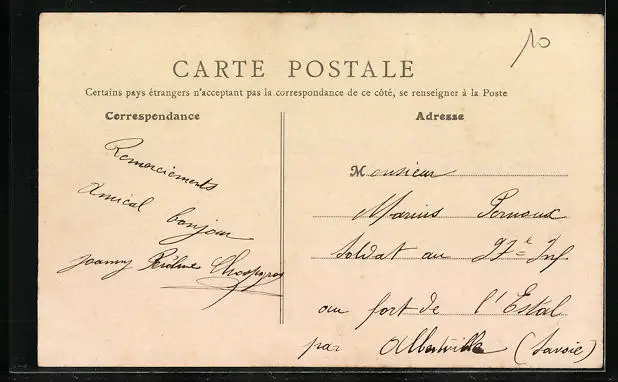 10
CARTE POSTALE
Certains pays étrangers n'acceptant pas la correspondance de ce côté, se renseigner à la Poste
Correspondance
Adresse
Remerciements
Amical bonjour
Joanny
Monsieur
Marius Pernoux
Soldat au 97e Inf
au fort de l'Estal
par Albertville (Savoie)